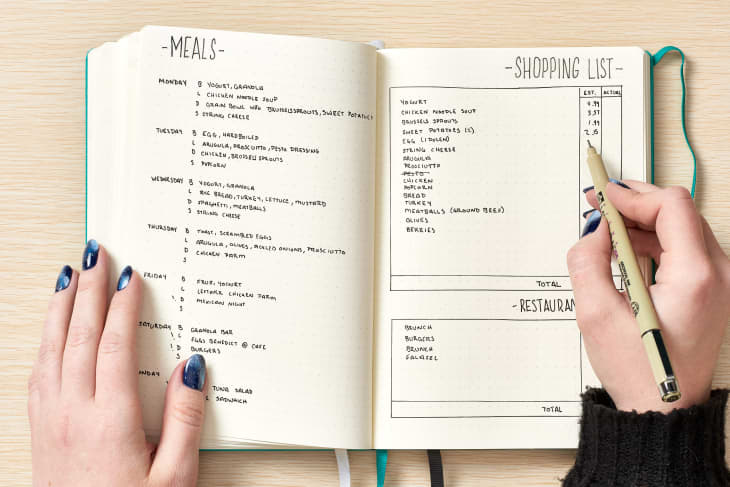 -MEALS-
MONDAY B YOGURT, GRANOLA
L CHICKEN NOODLE SOUP
D GRAIN BOWL W/ BRUSSELSSPROUTS, SWEET POTATOES
S STRING CHEESE
TUESDAY B EGG, HARDBOILED
L ARUGULA, PROSCIUTTO, PESTO DRESSING
D CHICKEN, BRUSSELSPROUTS
S POPCORN
WEDNESDAY B YOGURT, GRANOLA
L BREAD, TURKEY, LETTUCE, MUSTARD
D SPAGHETTI, MEATBALLS
S STRING CHEESE
THURSDAY B TOAST, SCRAMBLED EGGS
L ARUGULA, OLIVES, PICKLED ONIONS, PROSCIUTTO
D CHICKEN PARM
S
FRIDAY B FRUIT, YOGURT
L LEFTOVER CHICKEN PARM
D MEXICAN NIGHT
SATURDAY B GRANOLA BAR
L EGGS BENEDICT @ CAFE
D BURGERS
S
NDAY
TUNA SALAD
L SADWHICH
-SHOPPING LIST-
EST. ACTUAL
YOGURT 4.99
CHICKEN NOODLE SOUP 3.57
BRUSSELS SPROUTS 1.99
SWEET POTATOES (2) 2.
EGG (1 DOZEN)
STRING CHEESE
ARUGULA
PROSCIUTTO
PESTO
CHICKEN
POPCORN
BREAD
TURKEY
MEATBALLS (GROUND BEEF)
OLIVES
BERRIES
TOTAL
-RESTAURAN
BRUNCH
BURGERS
BRUNCH
FALAFEL
TOTAL